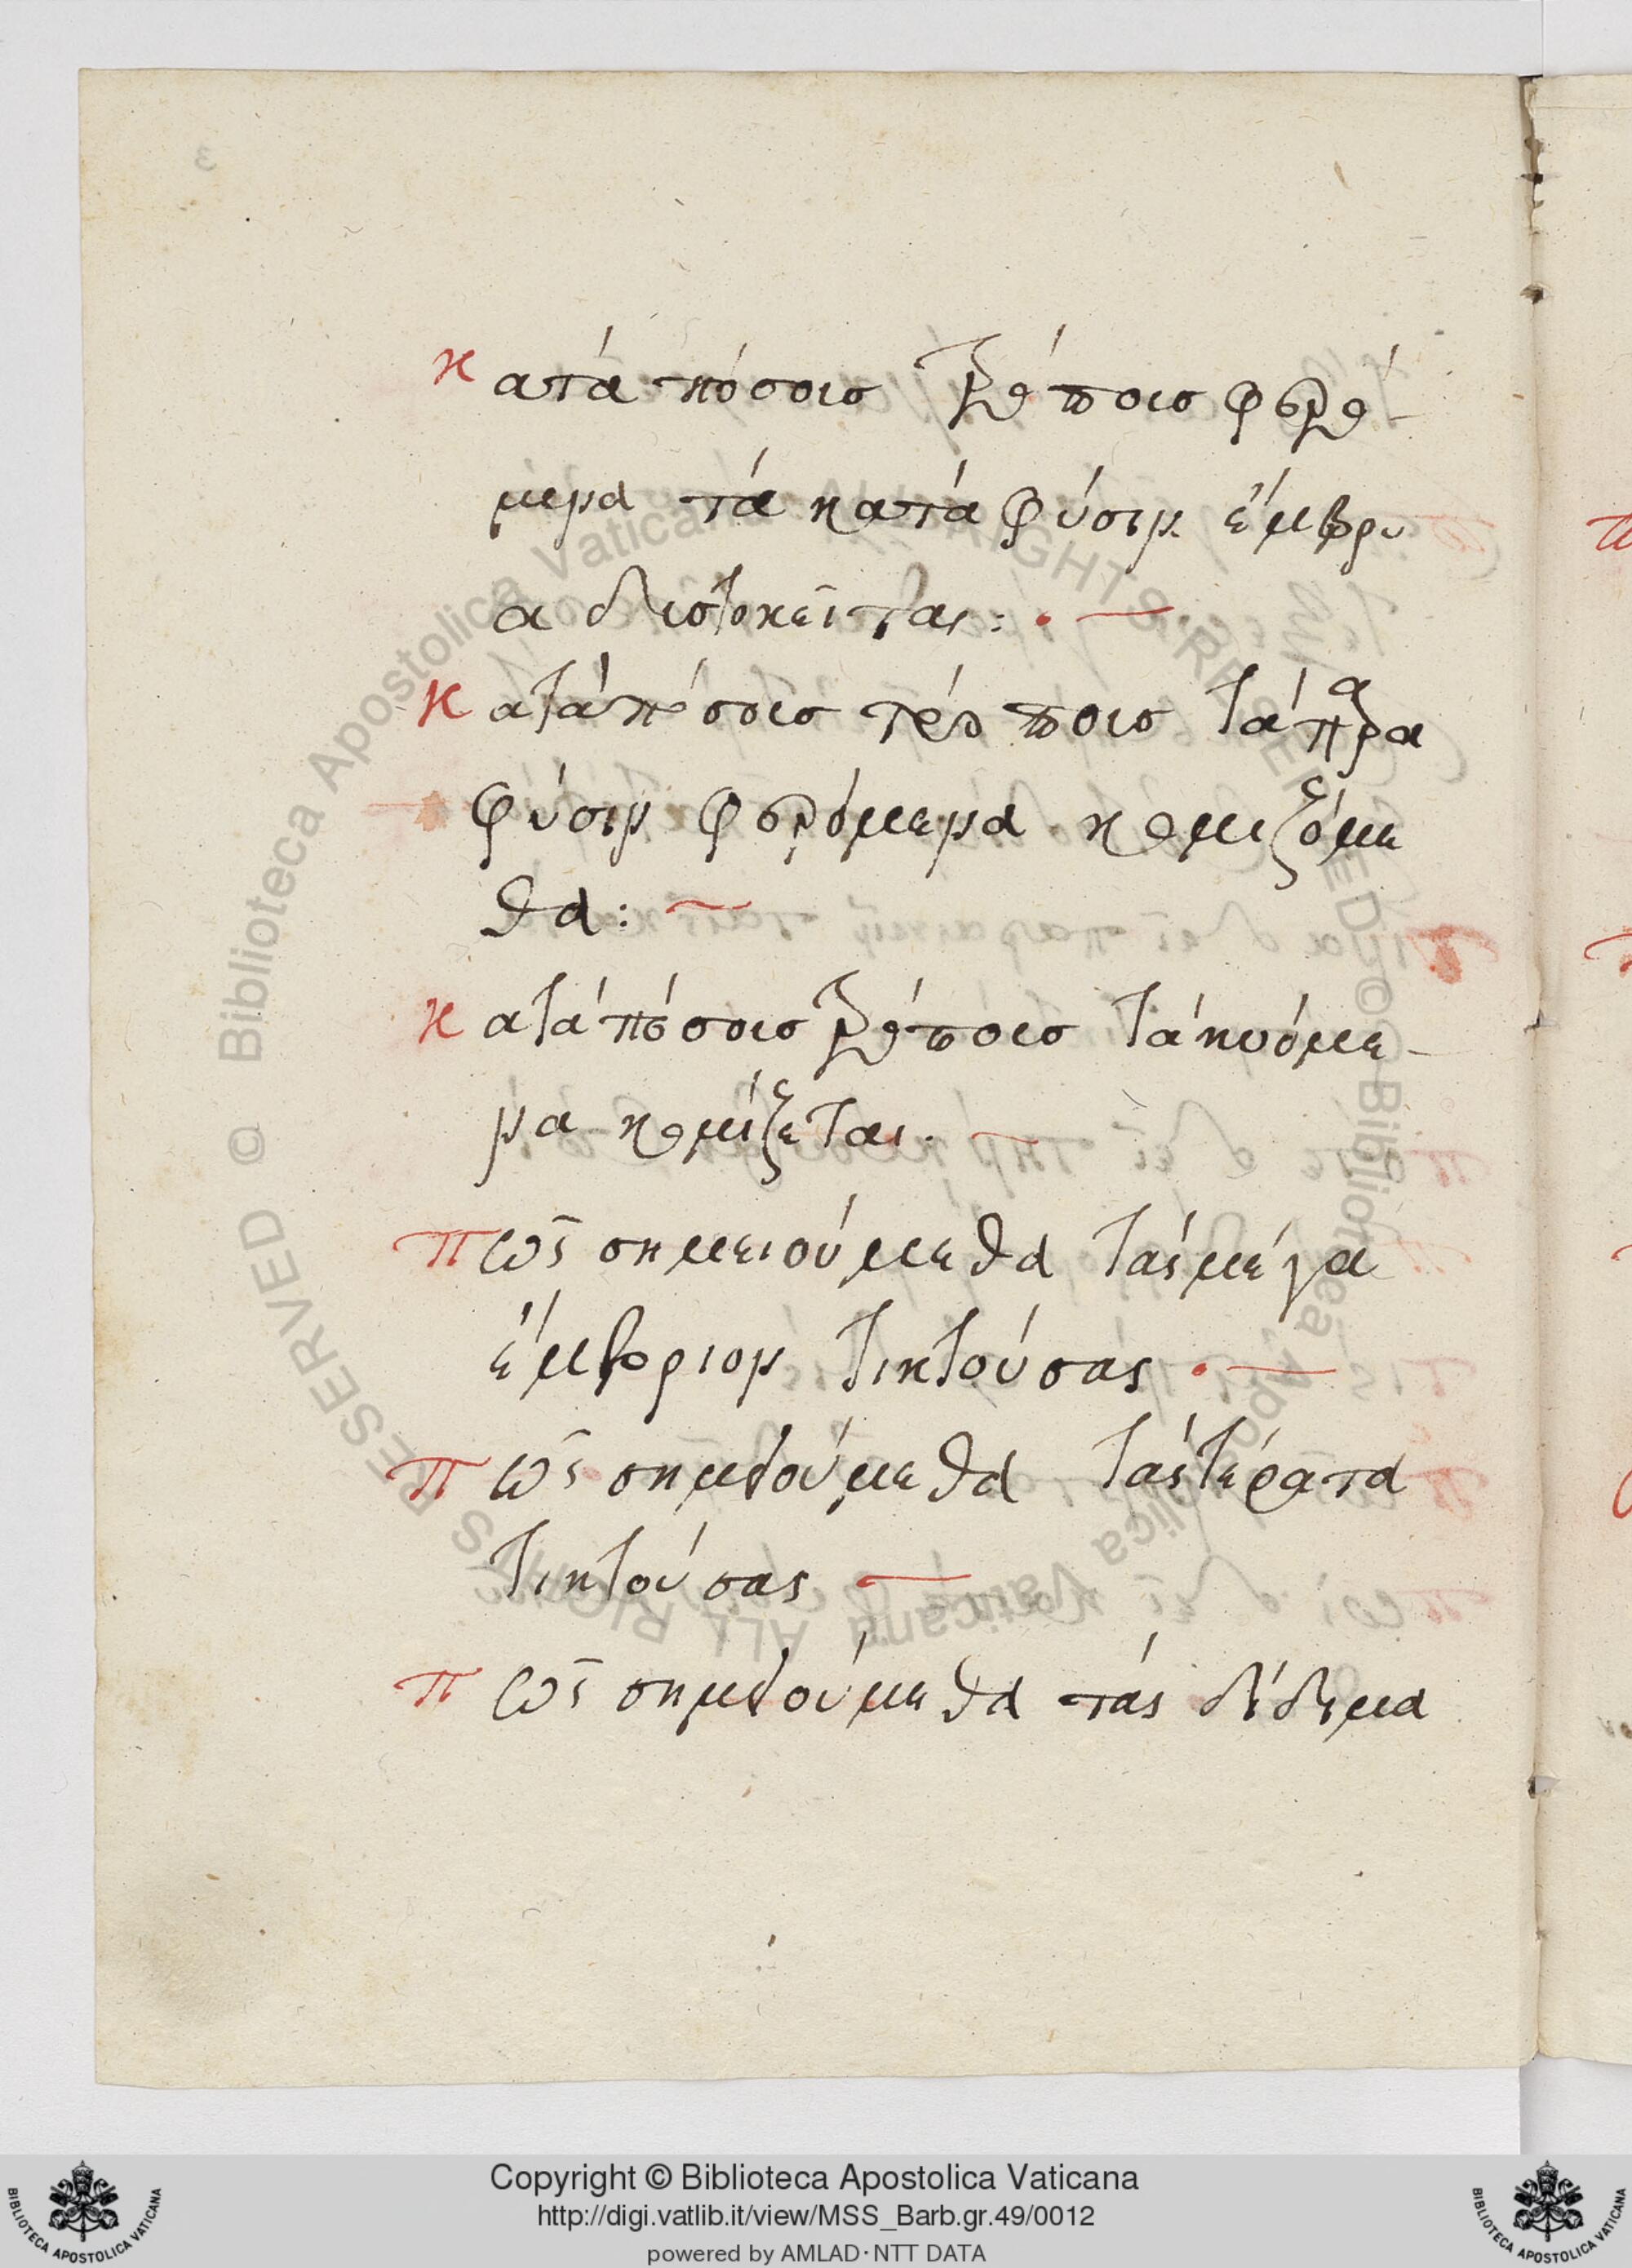 κατὰ πόσοισ τρόποισ φερό-
μενα τὰ κατὰ φύσιν ἔμβρυ
α δυστοκεῖται:
κατὰ πόσοισ τρόποισ τὰ παρα
φύσιν φερόμενα κομιζόμε
θα:
κατὰ πόσοισ τρόποισ τὰ κυόμε-
να κομίζεται.
πῶς σημειούμεθα τὰς μέγα
ἔμβριον τικτούσας
πῶς σημειούμεθα τὰς τέρατα
τικτούσας
πῶς σημειούμεθα τὰς δίδυμα
Copyright © Biblioteca Apostolica Vaticana
http://digi.vatlib.it/view/MSS_Barb.gr.49/0012
powered by AMLAD·NTT DATA
BIBLIOTECA APOSTOLICA VATICANA
BIBLIOTECA APOSTOLICA VATICANA
© Biblioteca Apostolica Vaticana ALL RIGHTS RESERVED
© Biblioteca Apostolica Vaticana ALL RIGHTS RESERVED